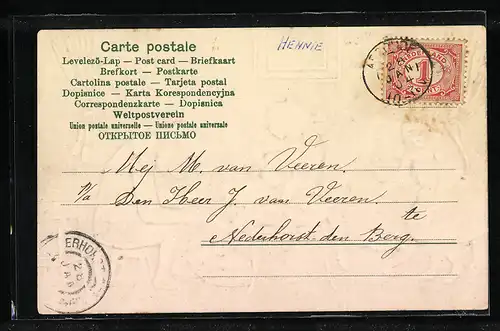 Carte postale
Levelező-Lap — Post card — Briefkaart
Brefkort — Postkarte
Cartolina postale — Tarjeta postal
Dopisnice — Karta Korespondencyjna
Correspondenzkarte — Dopisnica
Weltpostverein
Union postale universelle — Unione postale universale
ОТКРЫТОЕ ПИСЬМО
HENNIE
NEDERLAND
1
Mej M. van Veeren.
p/a Den Heer J. van Veeren.
te
Nederhorst den Berg.